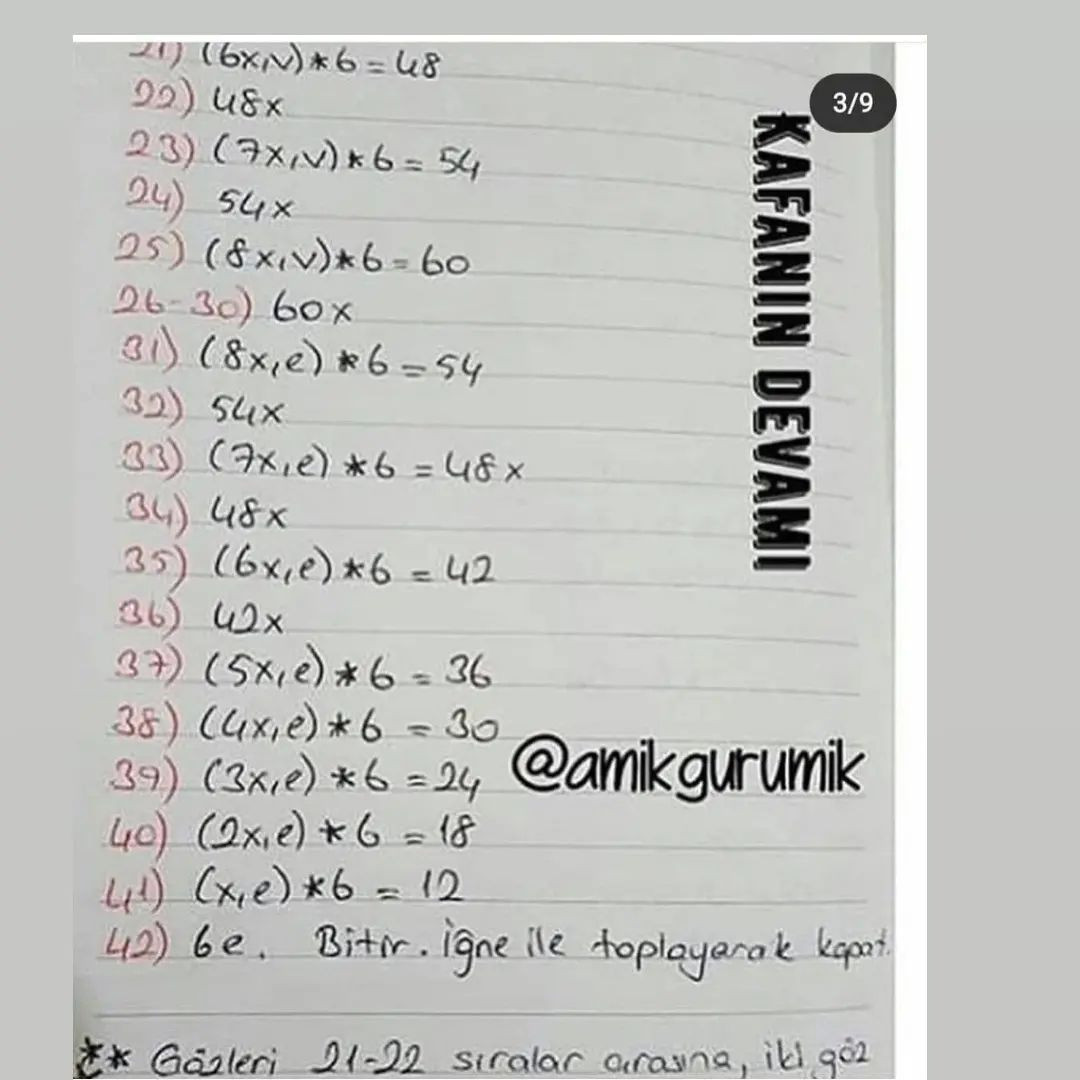 21) (6x,v)*6=48
3/9
22) 48x
23) (7x,v)*6=54
24) 54x
25) (8x,v)*6=60
26-30) 60x
31) (8x,e)*6=54
32) 54x
33) (7x,e)*6=48x
34) 48x
35) (6x,e)*6=42
36) 42x
37) (5x,e)*6=36
38) (4x,e)*6=30
39) (3x,e)*6=24
40) (2x,e)*6=18
41) (x,e)*6=12
42) 6e. Bitir. İğne ile toplayarak kapat.
** Gözleri 21-22 sıralar arasına, iki göz
KAFANIN DEVAMI
@amikgurumik